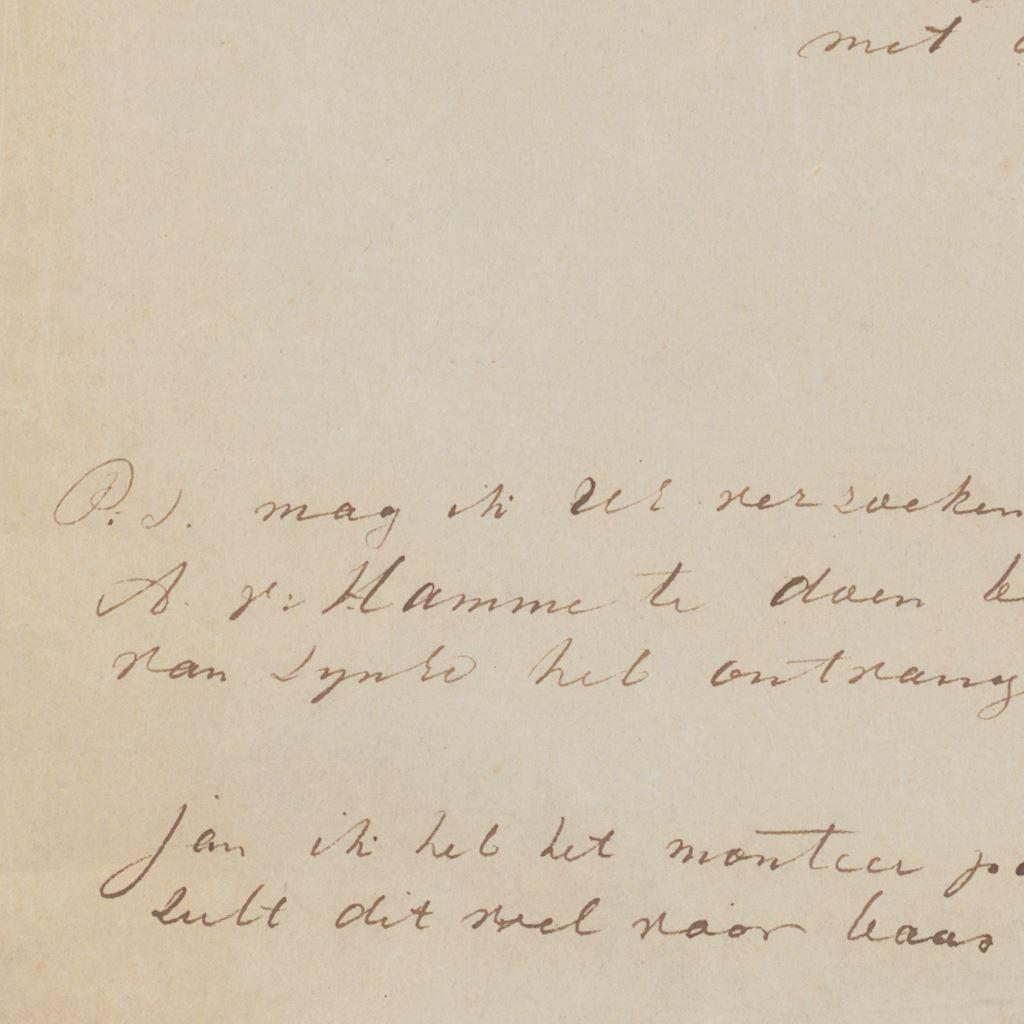 met
P.S. mag ik UE verzoeken
A. v: Hamme te doen
van heb ontvang
Jan ik heb het monteer
zult dit wel voor baas